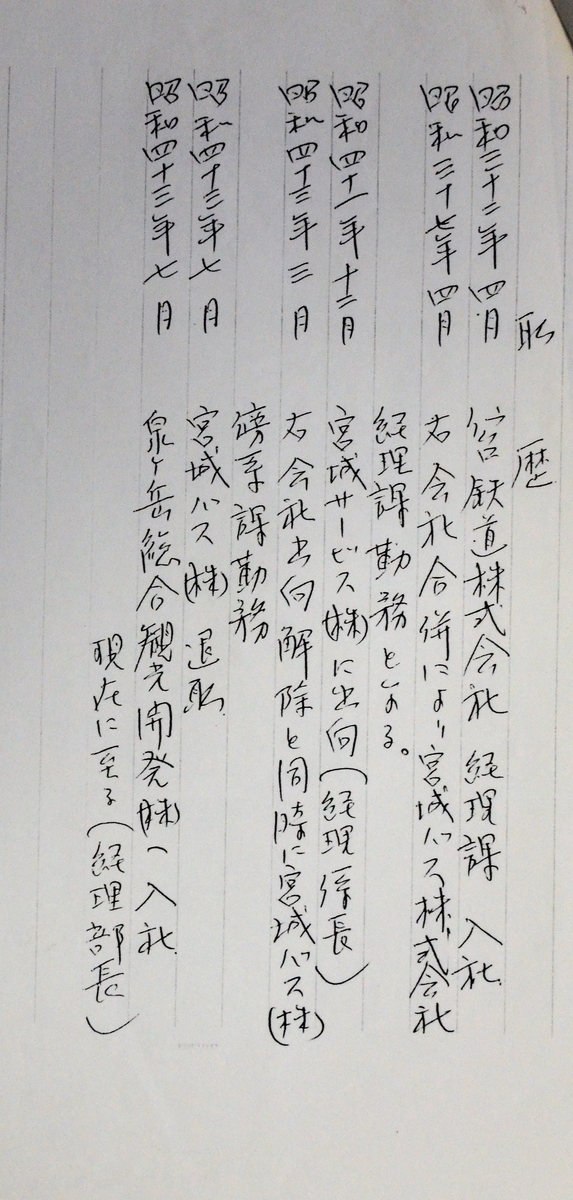 耺歴
昭和三十二年四月 鉄道株式会社 経理課 入社
昭和三十七年四月 右会社合併により宮城バス株式会社
経理課勤務となる。
昭和四十一年十二月 宮城サービス(株)に出向(経理係長)
昭和四十三年三月 右会社出向解除と同時に宮城バス(株)
傍系課勤務
昭和四十三年七月 宮城バス(株)退耺
昭和四十三年七月 泉ヶ岳総合観光開発(株)へ入社
現在に至る(経理部長)